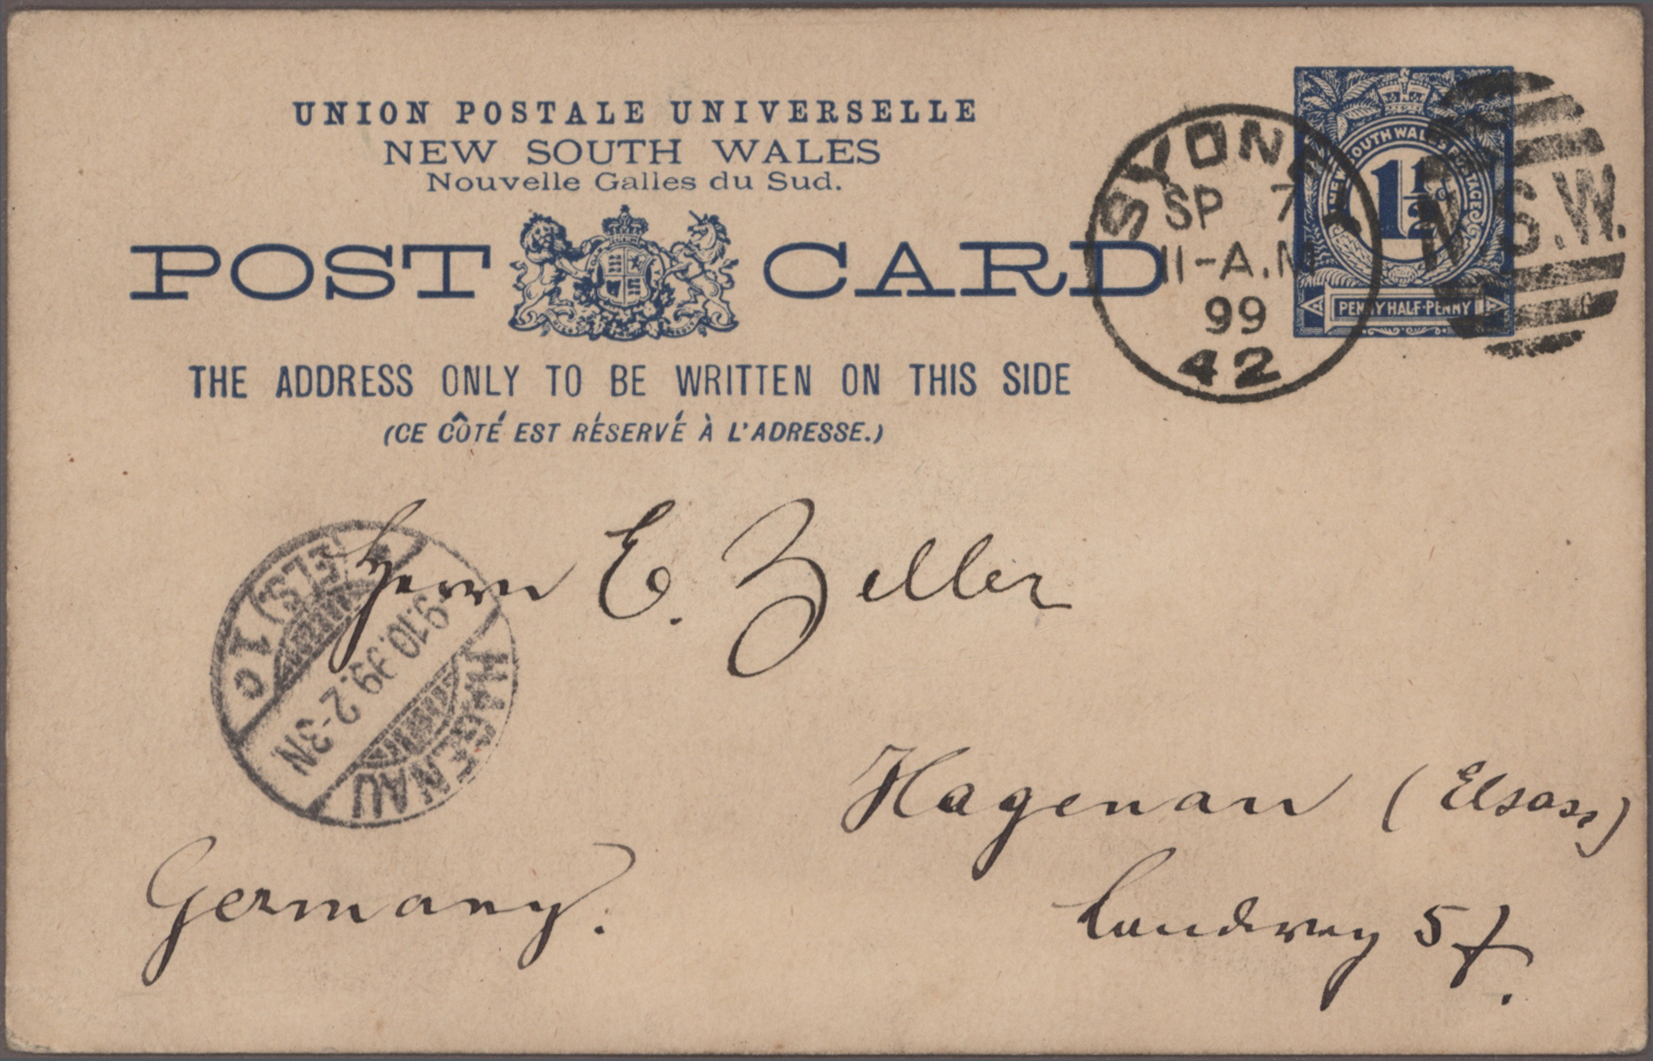 UNION POSTALE UNIVERSELLE
NEW SOUTH WALES
Nouvelle Galles du Sud.
POST CARD
THE ADDRESS ONLY TO BE WRITTEN ON THIS SIDE
(CE CÔTÉ EST RÉSERVÉ À L'ADRESSE.)
NEW SOUTH WALES POSTAGE
1½D
PENNY HALF-PENNY
SYDNEY
SP 7
11-A.M
99
42
N.S.W.
Herrn E. Zeller
HAGENAU
(ELS.) 1c
9.10.99. 2-3N
Hagenau (Elsass)
Landweg 57.
Germany.